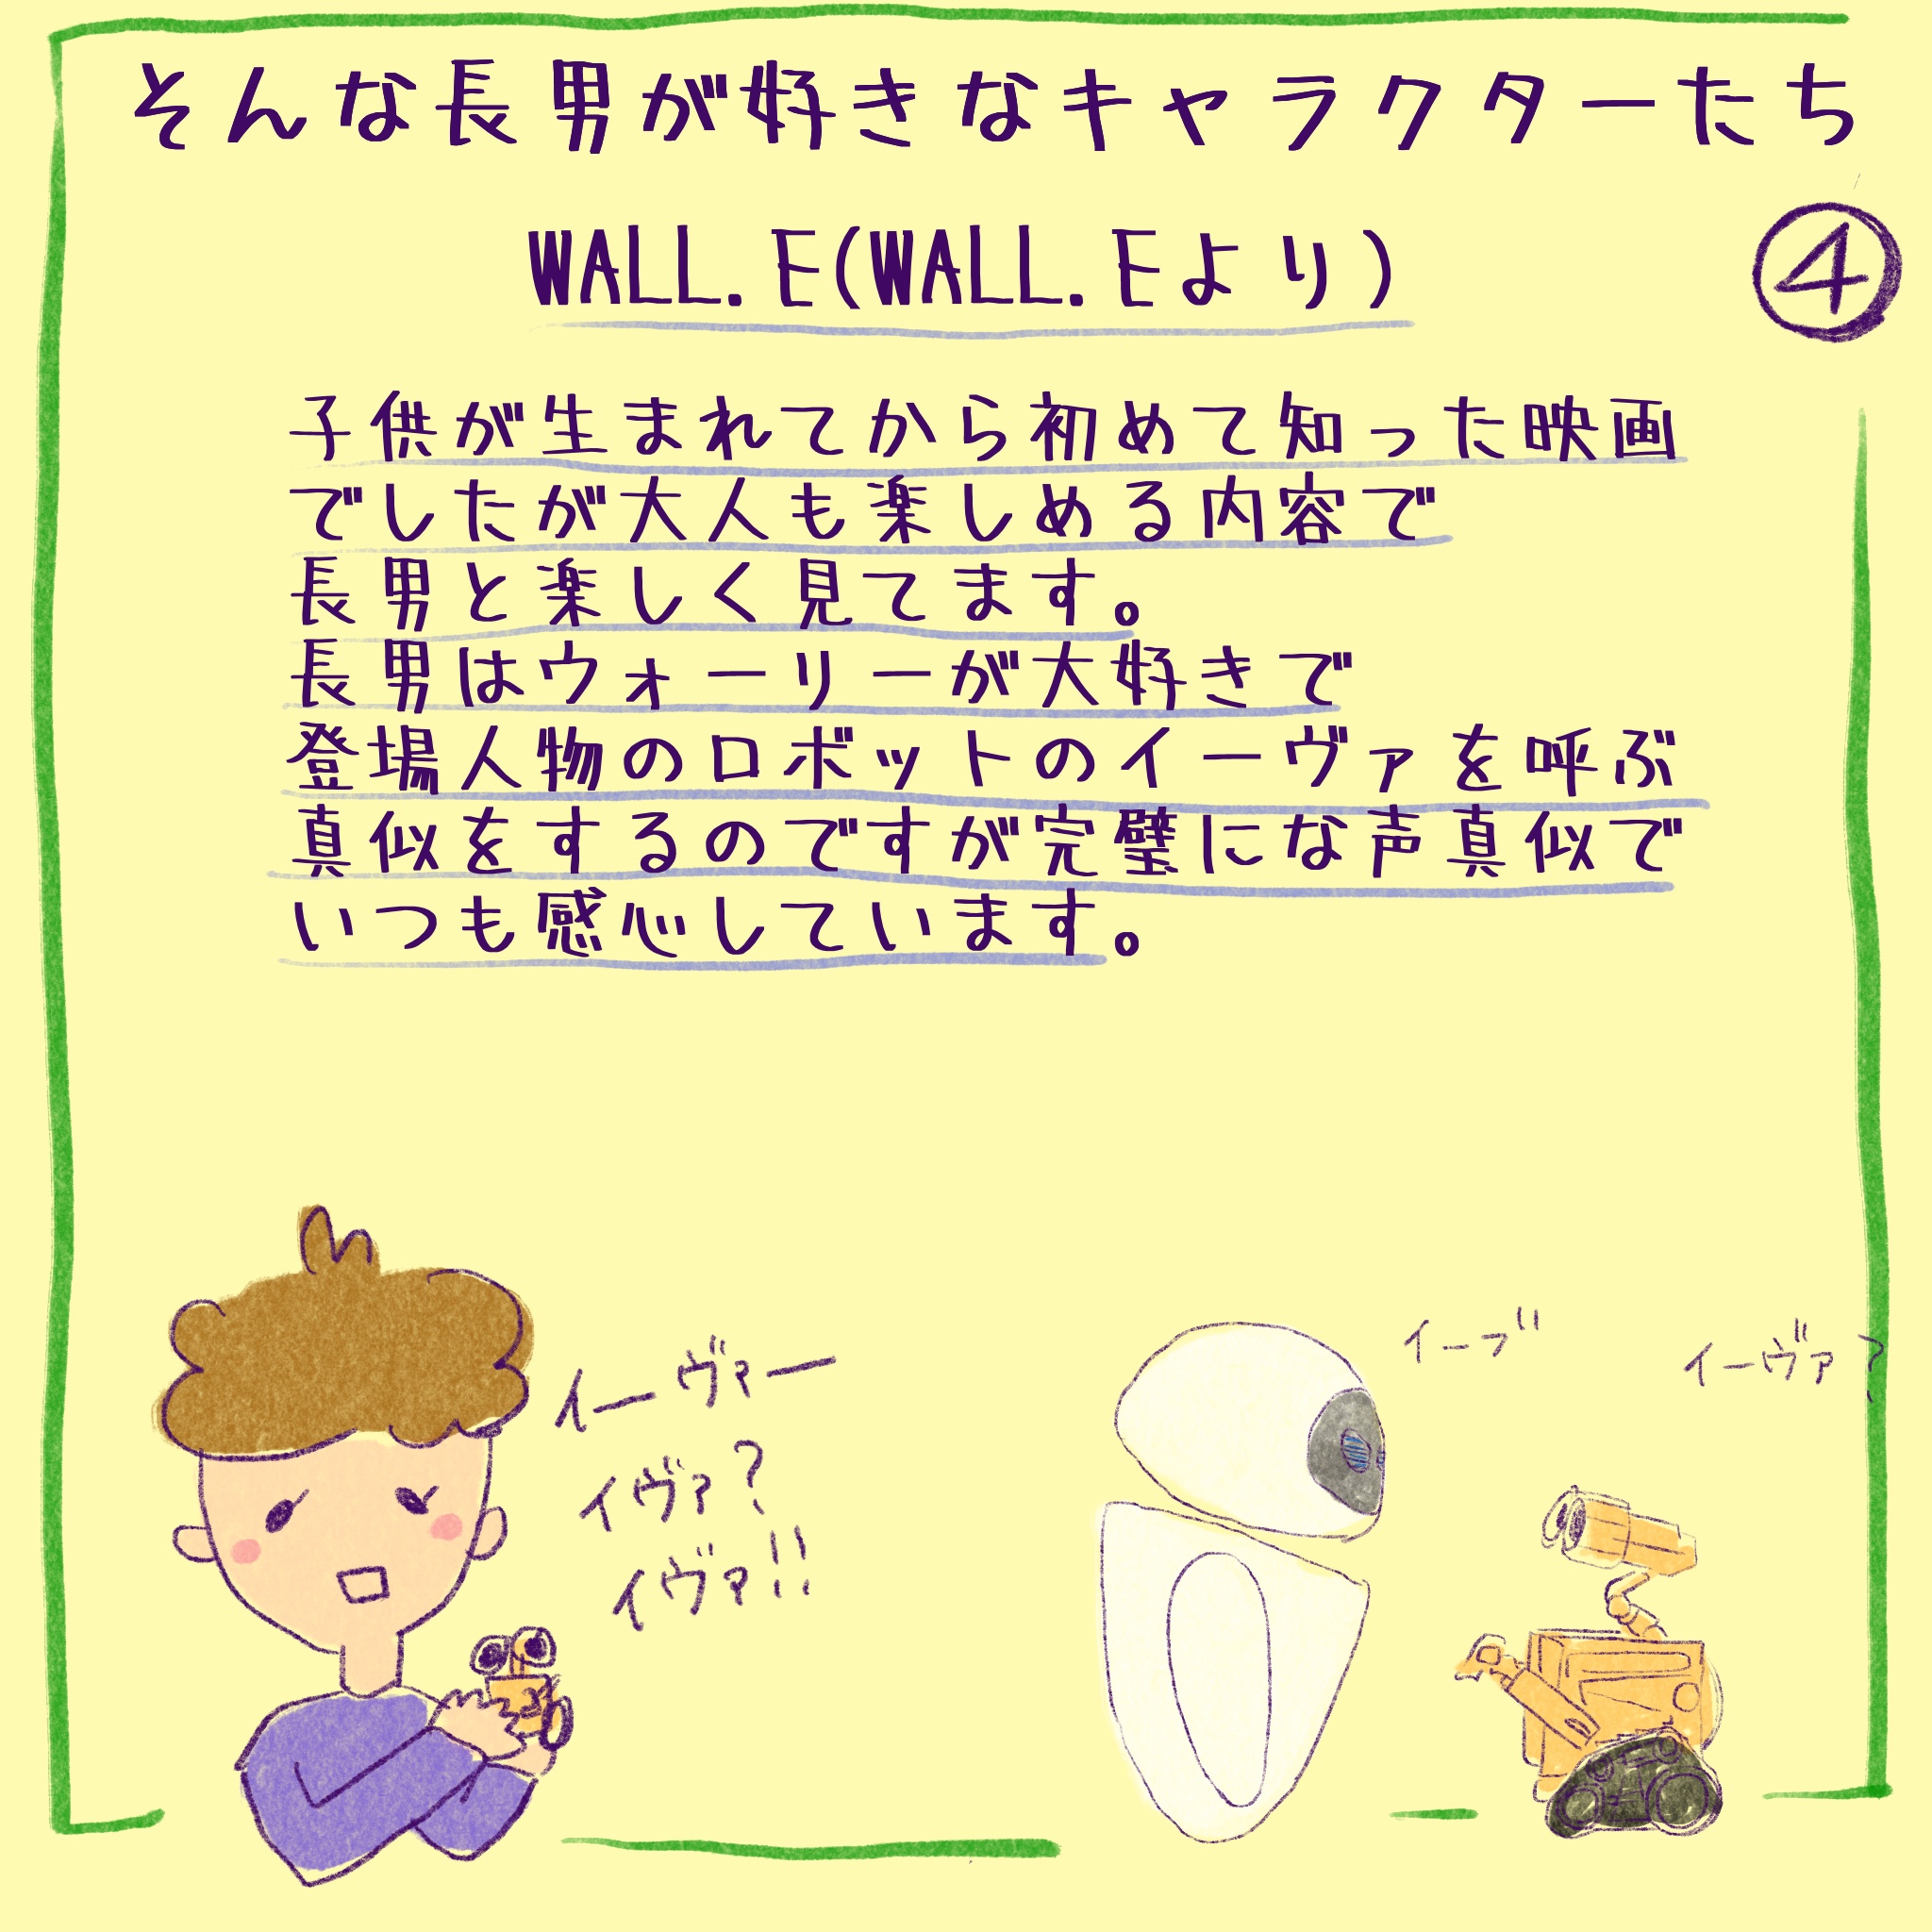 そんな長男が好きなキャラクターたち
④
WALL.E(WALL.Eより)
子供が生まれてから初めて知った映画
でしたが大人も楽しめる内容で
長男と楽しく見てます。
長男はウォーリーが大好きで
登場人物のロボットのイーヴァを呼ぶ
真似をするのですが完璧にな声真似で
いつも感心しています。
イーヴァー
イヴァ?
イヴァ!!
イーブ
イーヴァ?